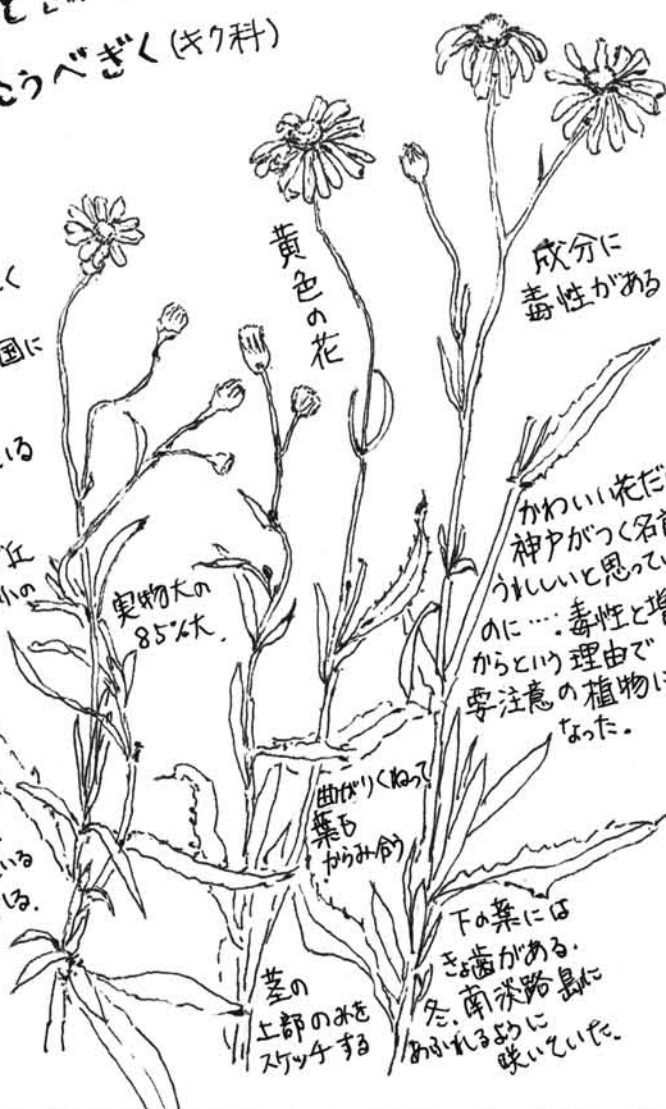 こうべぎく(キク科)
く
国に
いる
丘
小の
いる
いる.
黄色の花
成分に
毒性がある
実物大の
85%大.
かわいい花だ
神戸がつく名前
うれしいと思ってい
のに…. 毒性と増
からという理由で
要注意の植物に
なった.
曲がりくねって
葉も
からみ合う
茎の
上部のみを
スケッチする
下の葉には
きょ歯がある.
冬、南淡路島に
あふれるように
咲いていた.